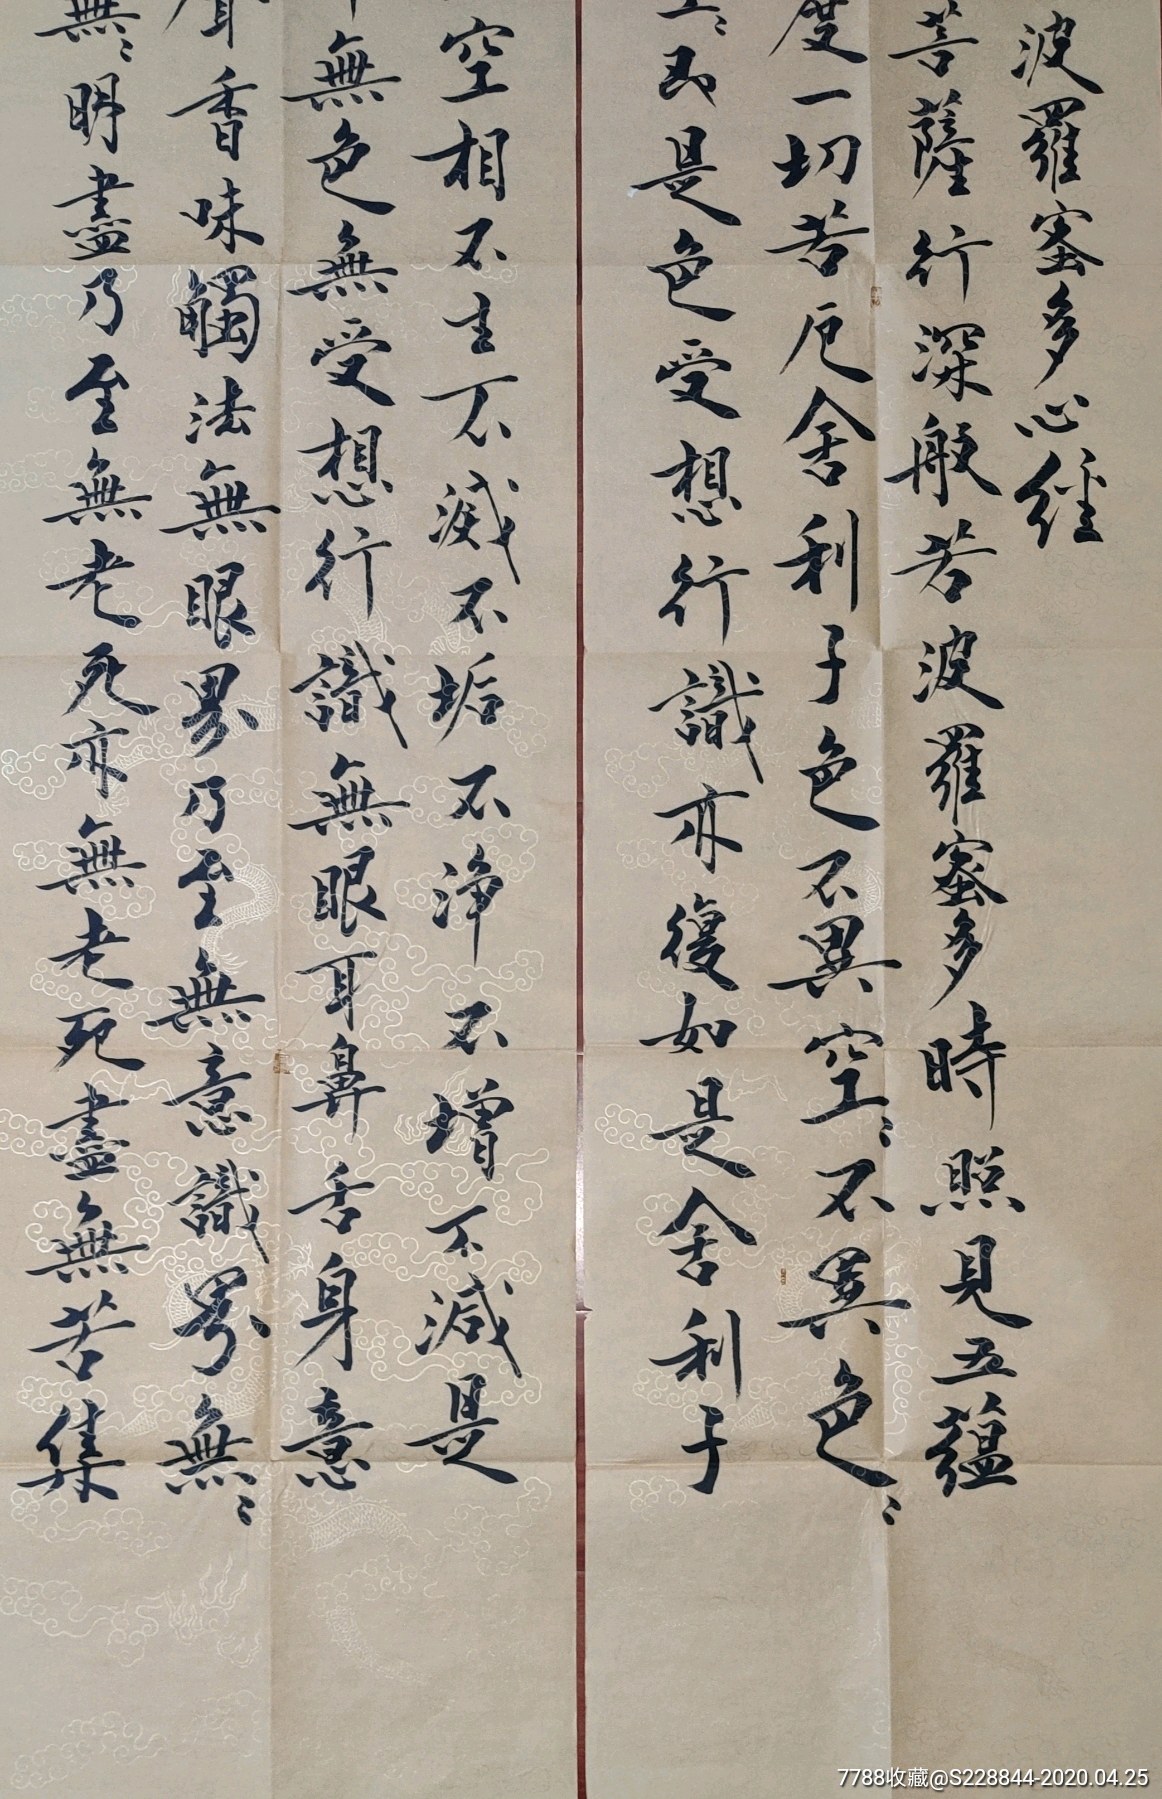 波羅蜜多心經
菩薩行深般若波羅蜜多時照見五蘊
度一切苦厄舍利子色不異空〻不異色〻
〻即是色受想行識亦復如是舍利子
空相不生不滅不垢不淨不增不減是
無色無受想行識無眼耳鼻舌身意
香味觸法無眼界乃至無意識界無〻
無〻明盡乃至無老死亦無老死盡無苦集
7788收藏@S228844-2020.04.25